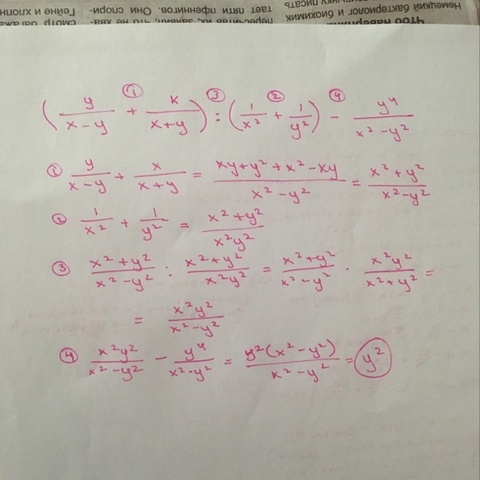 Немецкий бактериолог и биохимик
тает пяти пфеннигов. Они спори-
(y/(x-y) + x/(x+y)) : (1/x² + 1/y²) - y⁴/(x²-y²)
① ③ ② ④
① y/(x-y) + x/(x+y) = (xy+y²+x²-xy)/(x²-y²) = (x²+y²)/(x²-y²)
② 1/x² + 1/y² = (x²+y²)/(x²y²)
③ (x²+y²)/(x²-y²) : (x²+y²)/(x²y²) = (x²+y²)/(x²-y²) · (x²y²)/(x²+y²) =
= (x²y²)/(x²-y²)
④ (x²y²)/(x²-y²) - y⁴/(x²-y²) = (y²(x²-y²))/(x²-y²) = y²